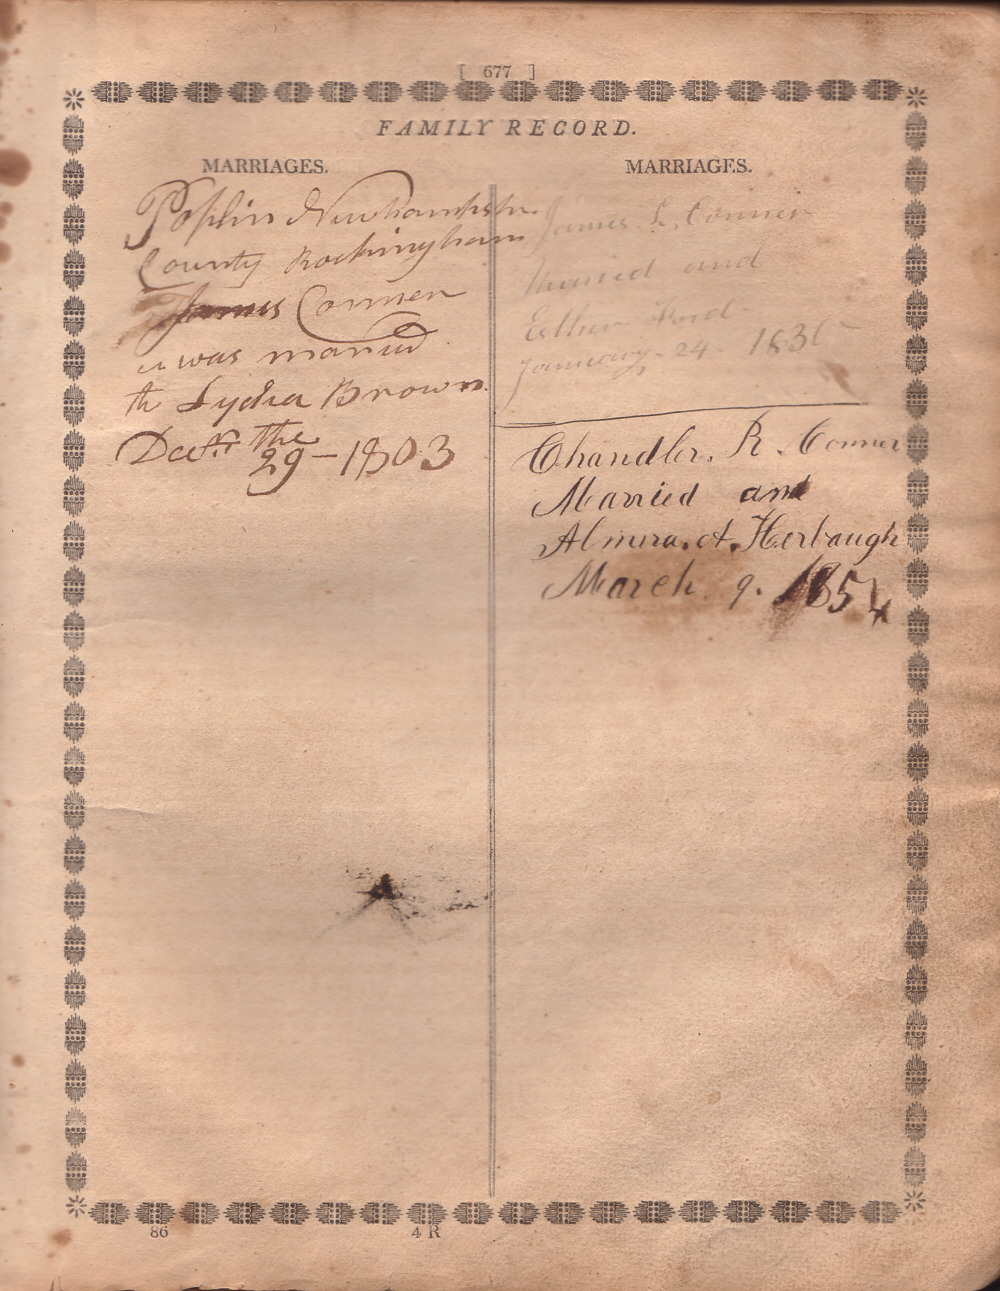 [ 677 ]
FAMILY RECORD.
MARRIAGES.
Poplin Newhampshr.
County Rockingham
James Conner
was married
to Lydia Brown.
Decr the
29 - 1803
MARRIAGES.
James L. Conner
Maried and
Esther Ford
January 24. 1836
Chandler. R. Conner
Married and
Almira. A. Herbaugh
March. 9. 1854
86
4 R